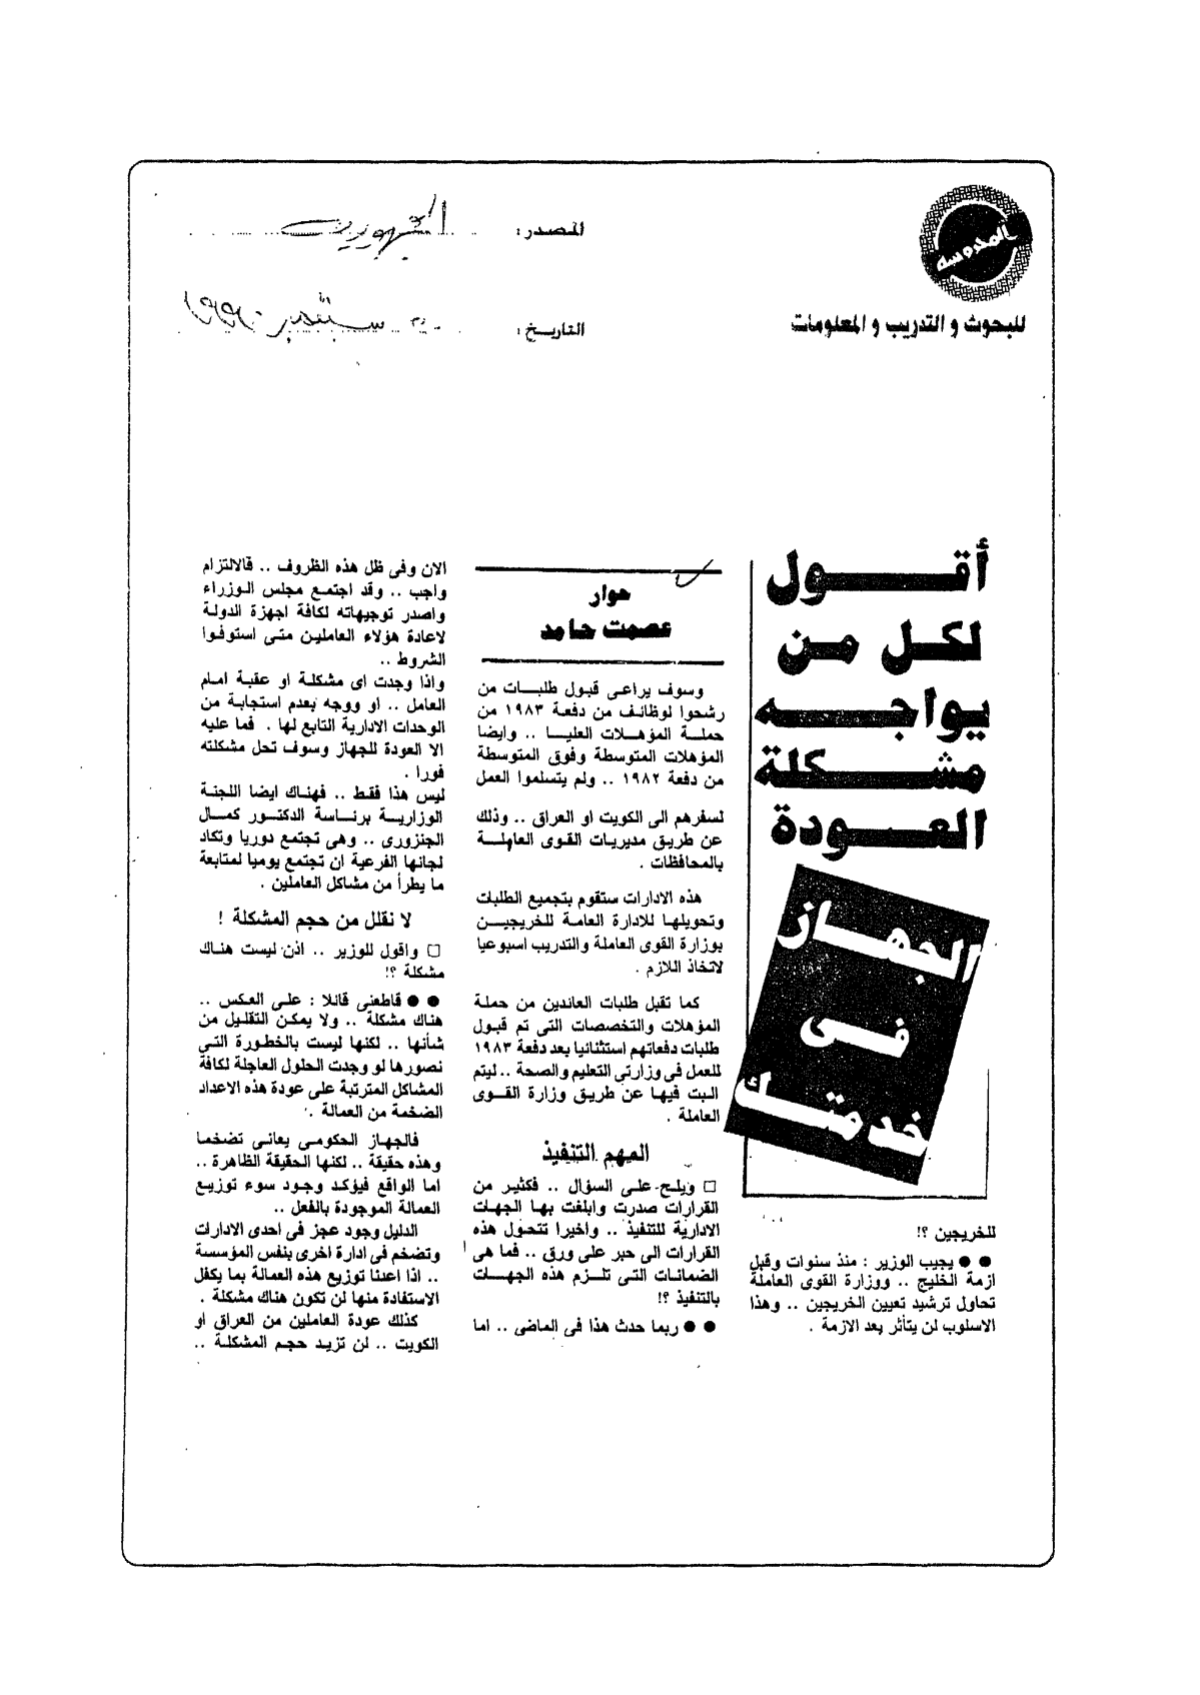 المحروسة
للبحوث و التدريب و المعلومات
المصدر: الجمهورية
التاريخ: سبتمبر ١٩٩٠
أقول
لكل من
يواجه
مشكلة
العودة
الجهاز
فى
خدمتك
للخريجين ؟!
●● يجيب الوزير : منذ سنوات وقبل
ازمة الخليج .. ووزارة القوى العاملة
تحاول ترشيد تعيين الخريجين .. وهذا
الاسلوب لن يتأثر بعد الازمة .
حوار
عصمت حامد
وسوف يراعى قبول طلبات من
رشحوا لوظائف من دفعة ١٩٨٣ من
حملة المؤهلات العليا .. وايضا
المؤهلات المتوسطة وفوق المتوسطة
من دفعة ١٩٨٢ .. ولم يتسلموا العمل
لسفرهم الى الكويت او العراق .. وذلك
عن طريق مديريات القوى العاملة
بالمحافظات .
هذه الادارات ستقوم بتجميع الطلبات
وتحويلها للادارة العامة للخريجين
بوزارة القوى العاملة والتدريب اسبوعيا
لاتخاذ اللازم .
كما تقبل طلبات العائدين من حملة
المؤهلات والتخصصات التى تم قبول
طلبات دفعاتهم استثنائيا بعد دفعة ١٩٨٣
للعمل فى وزارتى التعليم والصحة .. ليتم
البت فيها عن طريق وزارة القوى
العاملة .
المهم التنفيذ
□ ويلح على السؤال .. فكثير من
القرارات صدرت وابلغت بها الجهات
الادارية للتنفيذ .. واخيرا تتحول هذه
القرارات الى حبر على ورق .. فما هى
الضمانات التى تلزم هذه الجهات
بالتنفيذ ؟!
●● ربما حدث هذا فى الماضى .. اما
الان وفى ظل هذه الظروف .. فالالتزام
واجب .. وقد اجتمع مجلس الوزراء
واصدر توجيهاته لكافة اجهزة الدولة
لاعادة هؤلاء العاملين متى استوفوا
الشروط ..
واذا وجدت اى مشكلة او عقبة امام
العامل .. او ووجه بعدم استجابة من
الوحدات الادارية التابع لها . فما عليه
الا العودة للجهاز وسوف تحل مشكلته
فورا .
ليس هذا فقط .. فهناك ايضا اللجنة
الوزارية برئاسة الدكتور كمال
الجنزورى .. وهى تجتمع دوريا وتكاد
لجانها الفرعية ان تجتمع يوميا لمتابعة
ما يطرأ من مشاكل العاملين .
لا نقلل من حجم المشكلة !
□ واقول للوزير .. اذن ليست هناك
مشكلة ؟!
●● قاطعنى قائلا : على العكس ..
هناك مشكلة .. ولا يمكن التقليل من
شأنها .. لكنها ليست بالخطورة التى
نصورها لو وجدت الحلول العاجلة لكافة
المشاكل المترتبة على عودة هذه الاعداد
الضخمة من العمالة .
فالجهاز الحكومى يعانى تضخما
وهذه حقيقة .. لكنها الحقيقة الظاهرة ..
اما الواقع فيؤكد وجود سوء توزيع
العمالة الموجودة بالفعل ..
الدليل وجود عجز فى احدى الادارات
وتضخم فى ادارة اخرى بنفس المؤسسة
.. اذا اعدنا توزيع هذه العمالة بما يكفل
الاستفادة منها لن تكون هناك مشكلة .
كذلك عودة العاملين من العراق او
الكويت .. لن تزيد حجم المشكلة ..